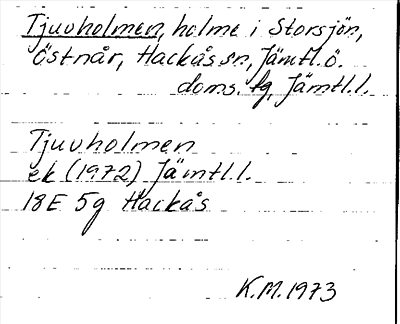 Tjuvholmen, holme i Storsjön,
Östnår, Hackås sn, Jämtl.ö.
doms. fg, Jämtl.l.
Tjuvholmen
ek (1972) Jämtl.l.
18E 5g Hackås
K.M. 1973